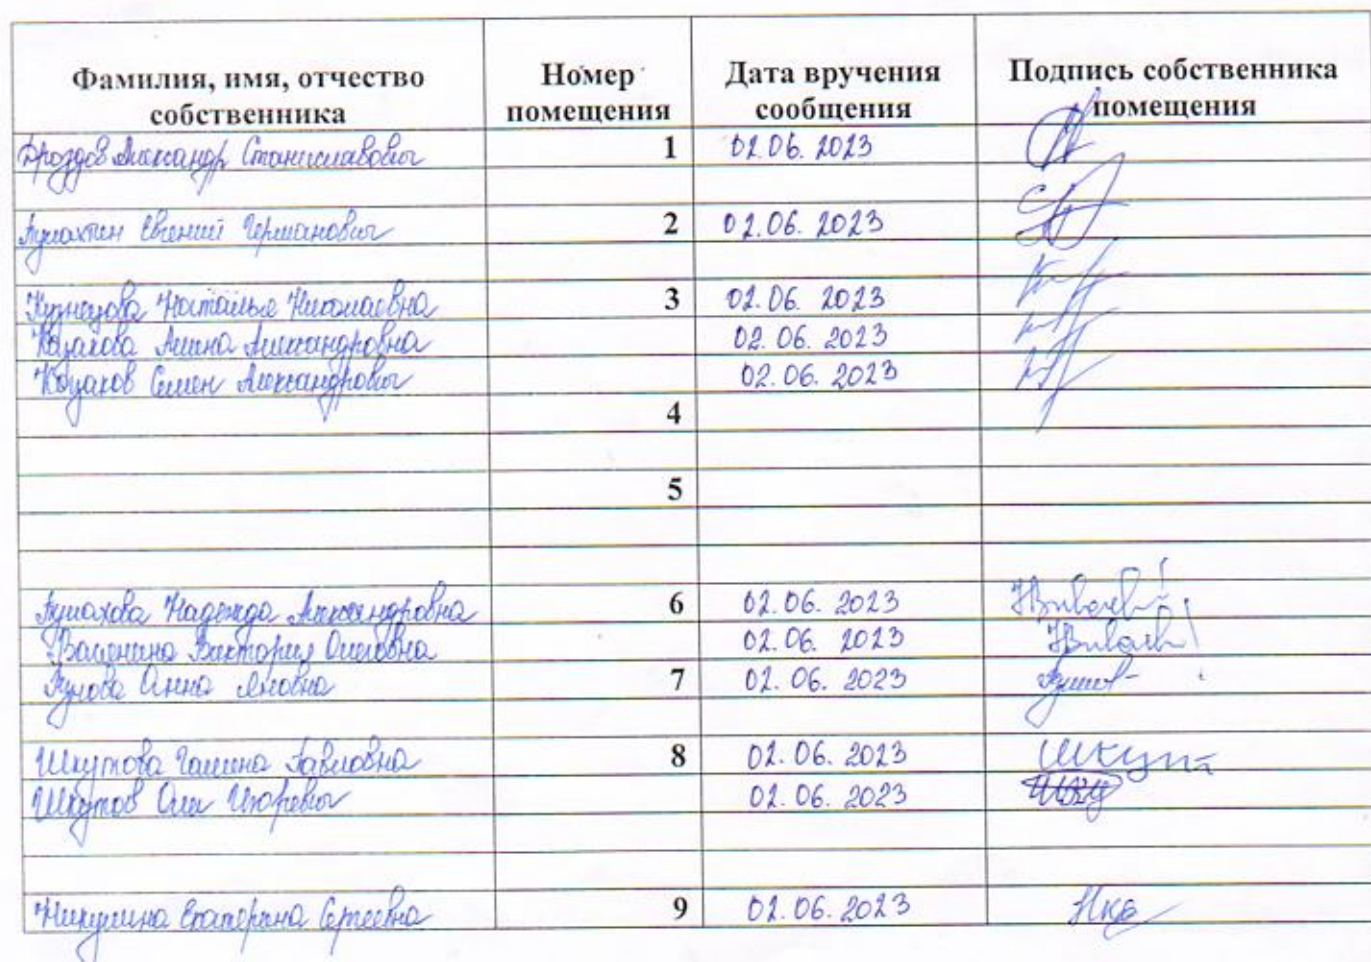 Фамилия, имя, отчество собственника Номер помещения Дата вручения сообщения Подпись собственника помещения
Дроздов Александр Станиславович 1 02.06.2023
Евгений Германович 2 02.06.2023
Кузнецова Наталья Николаевна 3 02.06.2023
Казакова Алина Александровна 02.06.2023
Казаков Семен Александрович 02.06.2023
4
5
Надежда Александровна 6 02.06.2023
Виктория Олеговна 02.06.2023
Анна Яковна 7 02.06.2023
Шкутова Галина Павловна 8 02.06.2023
Шкутов Олег Игоревич 02.06.2023
Никулина Екатерина Сергеевна 9 02.06.2023